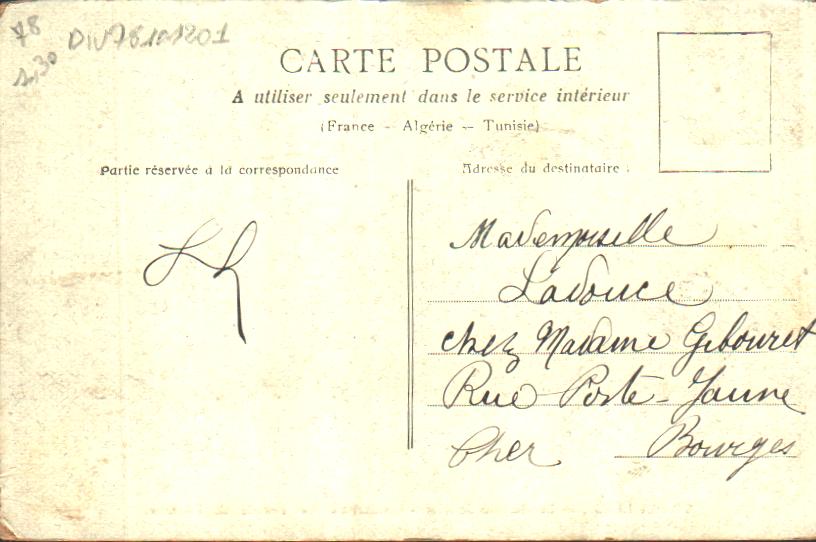 78
2,30
DIV781a1201
CARTE POSTALE
A utiliser seulement dans le service intérieur
(France - Algérie -- Tunisie)
Partie réservée à la correspondance
Adresse du destinataire :
Mademoiselle
Ladouce
chez Madame Gibouret
Rue Porte-Jaune
Cher Bourges